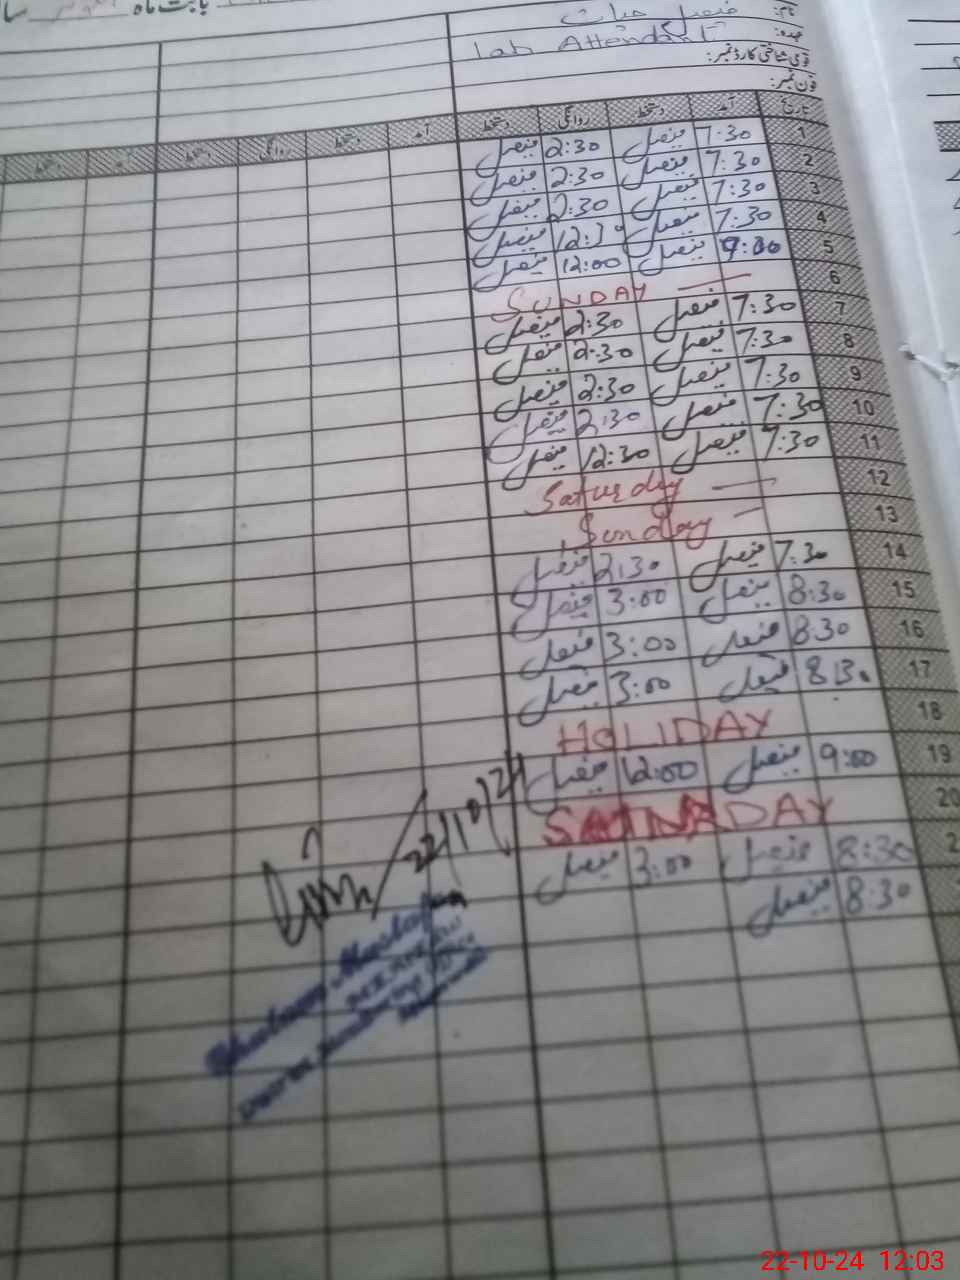 بابت ماہ
نام: فیصل حیات
عہدہ: Lab Attendant
قومی شناختی کارڈ نمبر:
فون نمبر:
تاریخ آمد دستخط روانگی دستخط آمد دستخط روانگی دستخط آمد دستخط
1 7:30 فیصل 2:30 فیصل
2 7:30 فیصل 2:30 فیصل
3 7:30 فیصل 2:30 فیصل
4 7:30 فیصل 12:30 فیصل
5 9:00 فیصل 12:00 فیصل
6 SUNDAY
7 7:30 فیصل 2:30 فیصل
8 7:30 فیصل 2:30 فیصل
9 7:30 فیصل 2:30 فیصل
10 7:30 فیصل 2:30 فیصل
11 7:30 فیصل 12:30 فیصل
12 Saturday
13 Sunday
14 7:30 فیصل 2:30 فیصل
15 8:30 فیصل 3:00 فیصل
16 8:30 فیصل 3:00 فیصل
17 8:30 فیصل 3:00 فیصل
18 HOLIDAY
19 9:00 فیصل 12:00 فیصل
20 DAY
2 8:30 فیصل 3:00 فیصل
8:30 فیصل
22/10/24
22-10-24 12:03